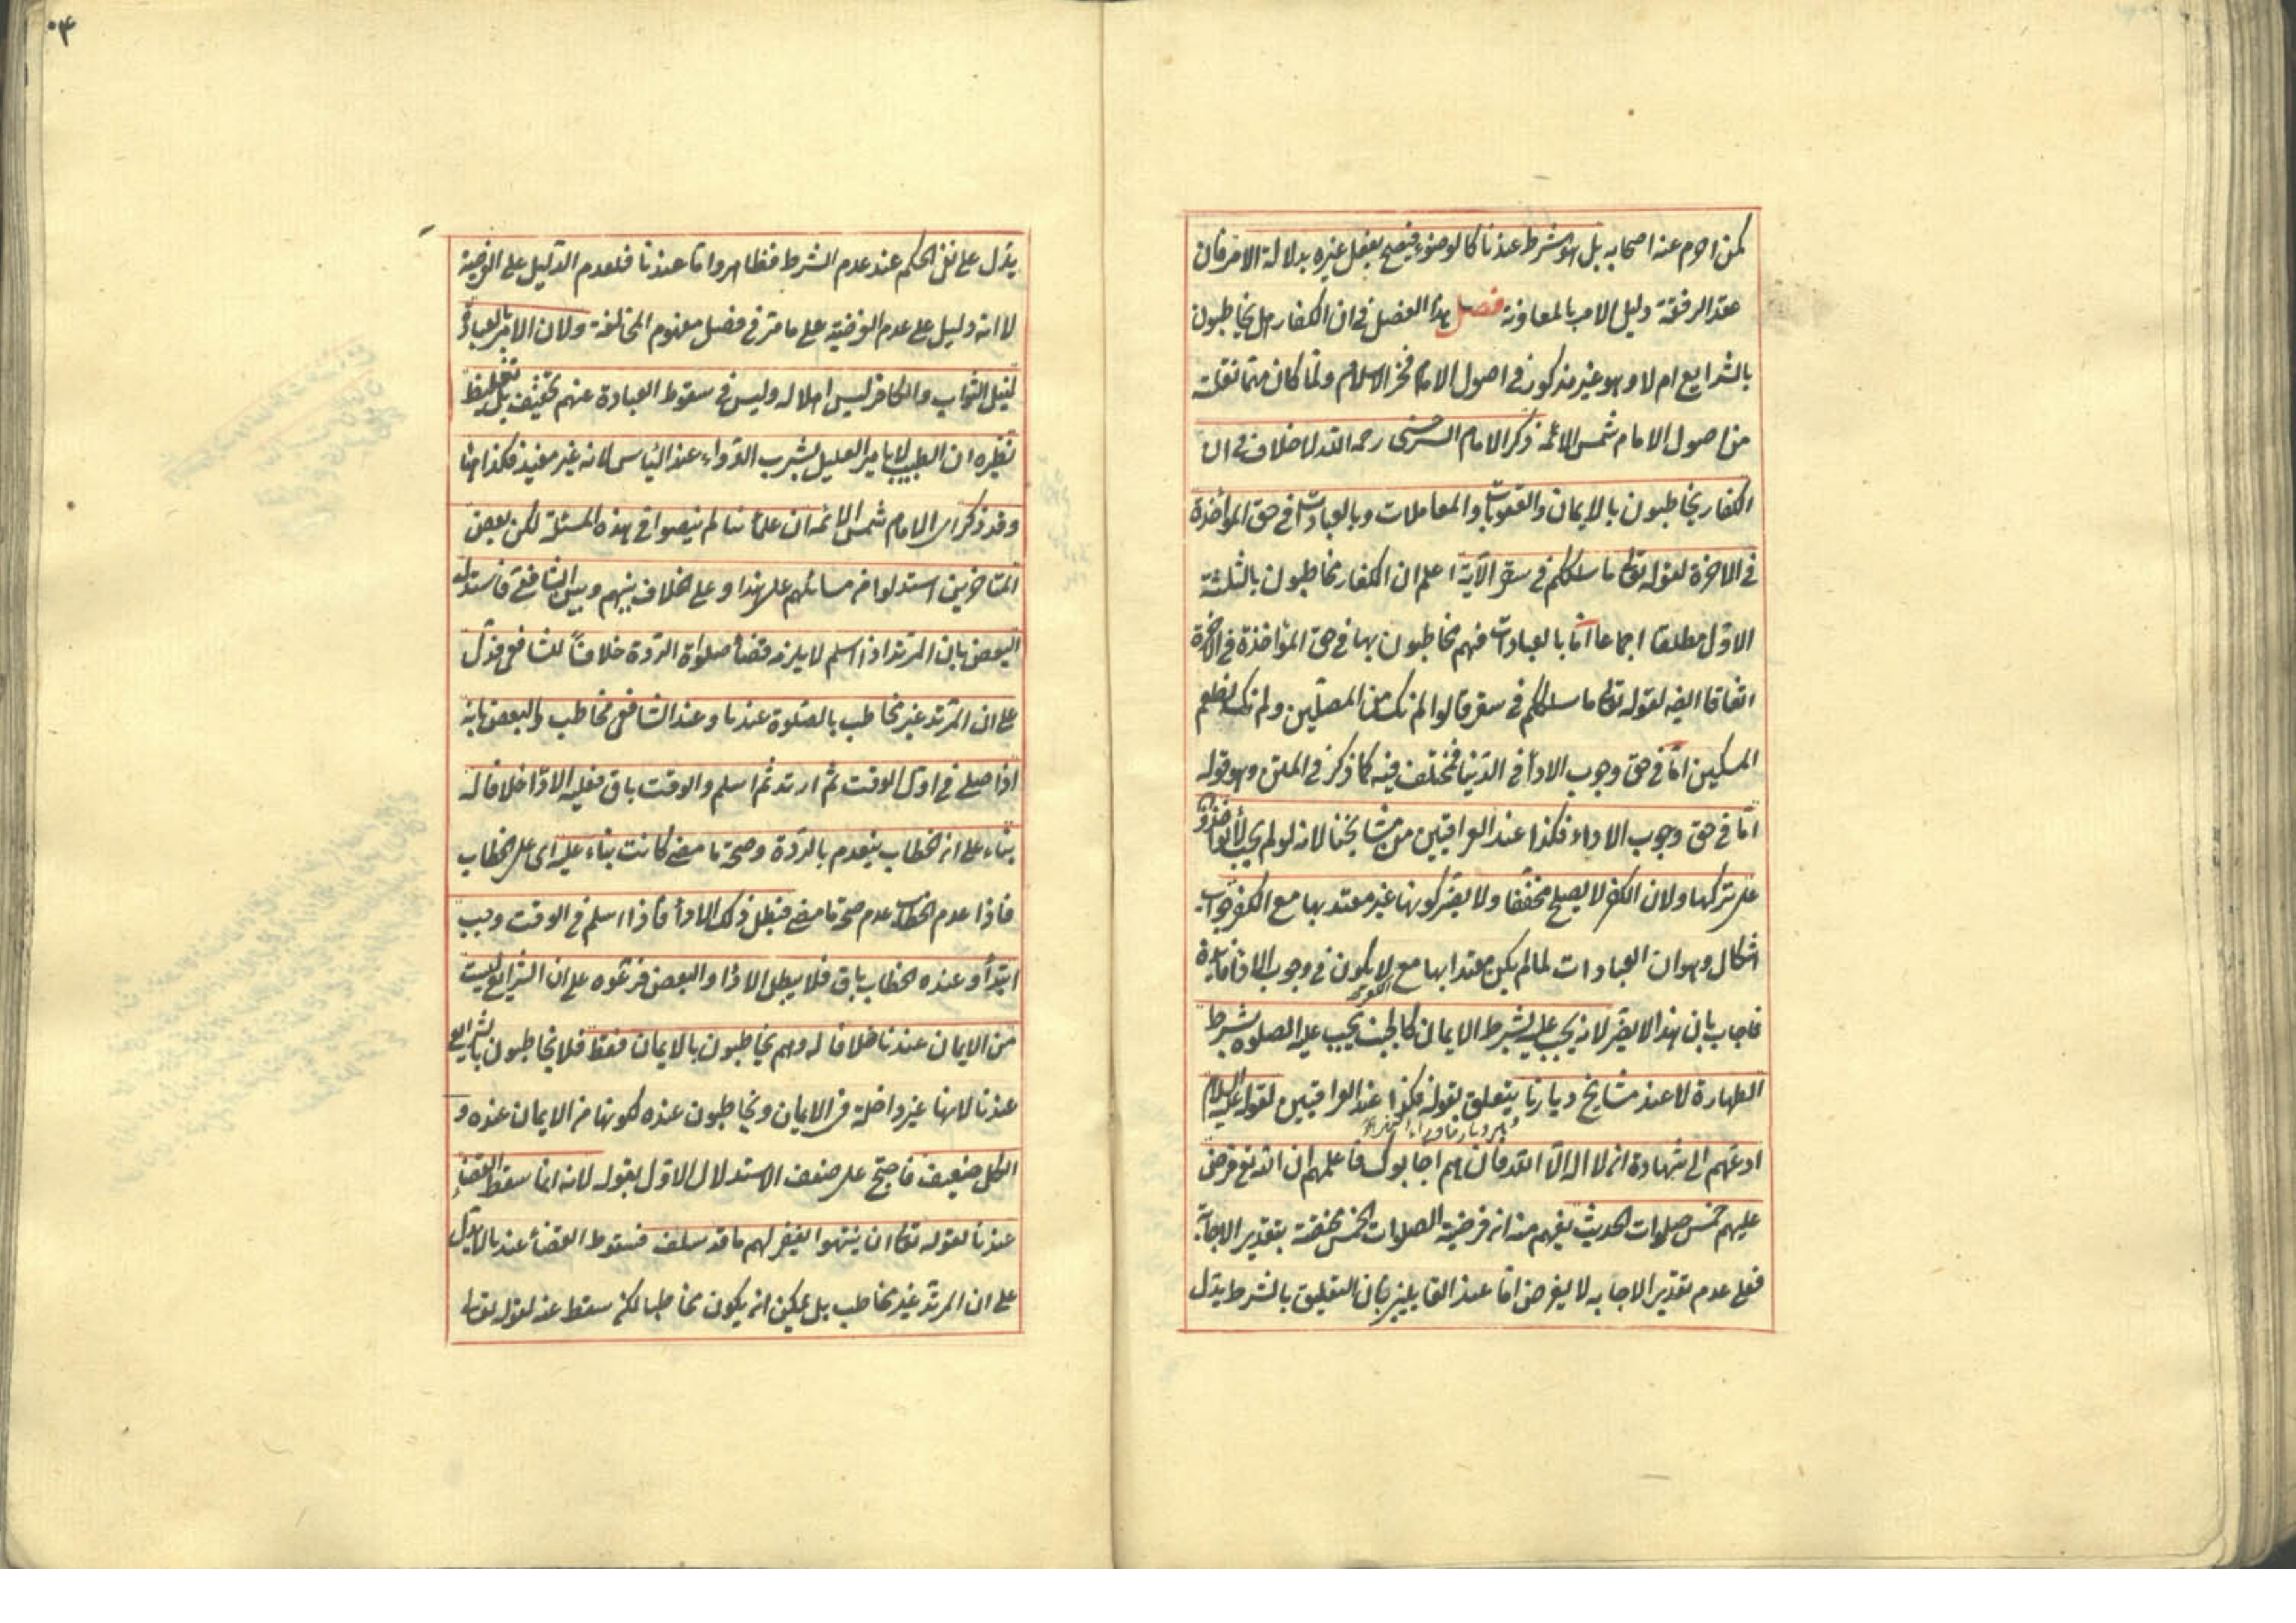 كمن احرم عنه اصحابه بل هو شرط عندنا كالوضوء فيصح بفعل غيره بدلالة الامر فان
عقد الرفقة دليل الامر بالمعاونة فصل هذا الفصل في ان الكفار هل يخاطبون
بالشرايع ام لا وهو غير مذكور في اصول الامام فخر الاسلام ولما كان مهما نقلته
من اصول الامام شمس الائمة ذكر الامام السرخسي رحمه الله لا خلاف في ان
الكفار يخاطبون بالايمان والعقوبات والمعاملات وبالعبادات في حق المؤاخذة
في الاخرة لقوله تعا ما سلككم في سقر الآية اعلم ان الكفار مخاطبون بالثلثة
الاول مطلقا اجماعا اما بالعبادات فهم مخاطبون بها في حق المؤاخذة في الاخرة
اتفاقا ايضا لقوله تعا ما سلككم في سقر قالوا لم نك من المصلين ولم نك نطعم
المسكين اما في حق وجوب الادأ في الدنيا فمختلف فيه كما ذكر في المتن وهو قوله
اما في حق وجوب الاداء فكذا عند العراقيين من مشايخنا لانه لو لم يجب لا يؤاخذوا
على تركها ولان الكفر لا يصلح مخففا ولا يضر كونها غير معتد بها مع الكفر جواب
اشكال وهو ان العبادات لما لم يكن معتدا بها مع الكفر لا يكون في وجوب الادأ فائدة
فاجاب بان هذا لا يضر لانه يجب عليه بشرط الايمان كالجنب يجب عليه الصلوة بشرط
الطهارة لا عند مشايخ ديارنا يتعلق بقوله فكذا عند العراقيين لقوله عليه السلام
ادعهم الى شهادة ان لا اله الا الله فان هم اجابوك فاعلمهم ان الله تع فرض
عليهم خمس صلوات الحديث يفهم منه ان فرضية الصلوات الخمس مختصة بتقدير الاجابة
فعلى عدم تقدير الاجابه لا يفرض اما عند القايلين بان التعليق بالشرط يدل
يدل على نفي الحكم عند عدم الشرط فظاهر واما عندنا فلعدم الدليل على الفرضية
لا انه دليل على عدم الفرضية على ما مر في فصل مفهوم المخالفة ولان الامر بالعبادة
لنيل الثواب والكافر ليس اهلا له وليس في سقوط العبادة عنهم تخفيف بل تغليظ
نظيره ان الطبيب لا يامر العليل بشرب الدواء عند الياس لانه غير مفيد فكذا ههنا
وقد ذكر اى الامام شمس الائمه ان علمأنا لم ينصوا في هذه المسئلة لكن بعض
المتاخرين استدلوا من مسائلهم على هذا وعلى الخلاف بينهم وبين الشافعي فاستدل
البعض بان المرتد اذا اسلم لا يلزمه قضأ صلوة الردة خلافا للشافعي فدل
على ان المرتد غير مخاطب بالصلوة عندنا وعند الشافعي مخاطب والبعض بانه
اذا صلى في اول الوقت ثم ارتد ثم اسلم والوقت باق فعليه الادا خلافا له
بناء على ان الخطاب ينعدم بالردة وصحة ما مضى كانت بناء عليه اى على الخطاب
فاذا عدم الخطاب عدم صحة ما مضى فبطل ذلك الادأ فاذا اسلم في الوقت وجب
ابتدأ وعنده الخطاب باق فلا يبطل الادا والبعض فرعوه على ان الشرايع ليست
من الايمان عندنا خلافا له وهم يخاطبون بالايمان فقط فلا يخاطبون بالشرايع
عندنا لانها غير داخلة في الايمان ويخاطبون عنده لكونها من الايمان عنده و
الكل ضعيف فاحتج على ضعف الاستدلال الاول بقوله لانه انما سقط القضأ
عندنا لقوله تعا ان ينتهوا يغفر لهم ما قد سلف فسقوط القضأ عندنا لا يدل
على ان المرتد غير مخاطب بل يمكن انه يكون مخاطبا لكن سقط عنه لقوله تعا